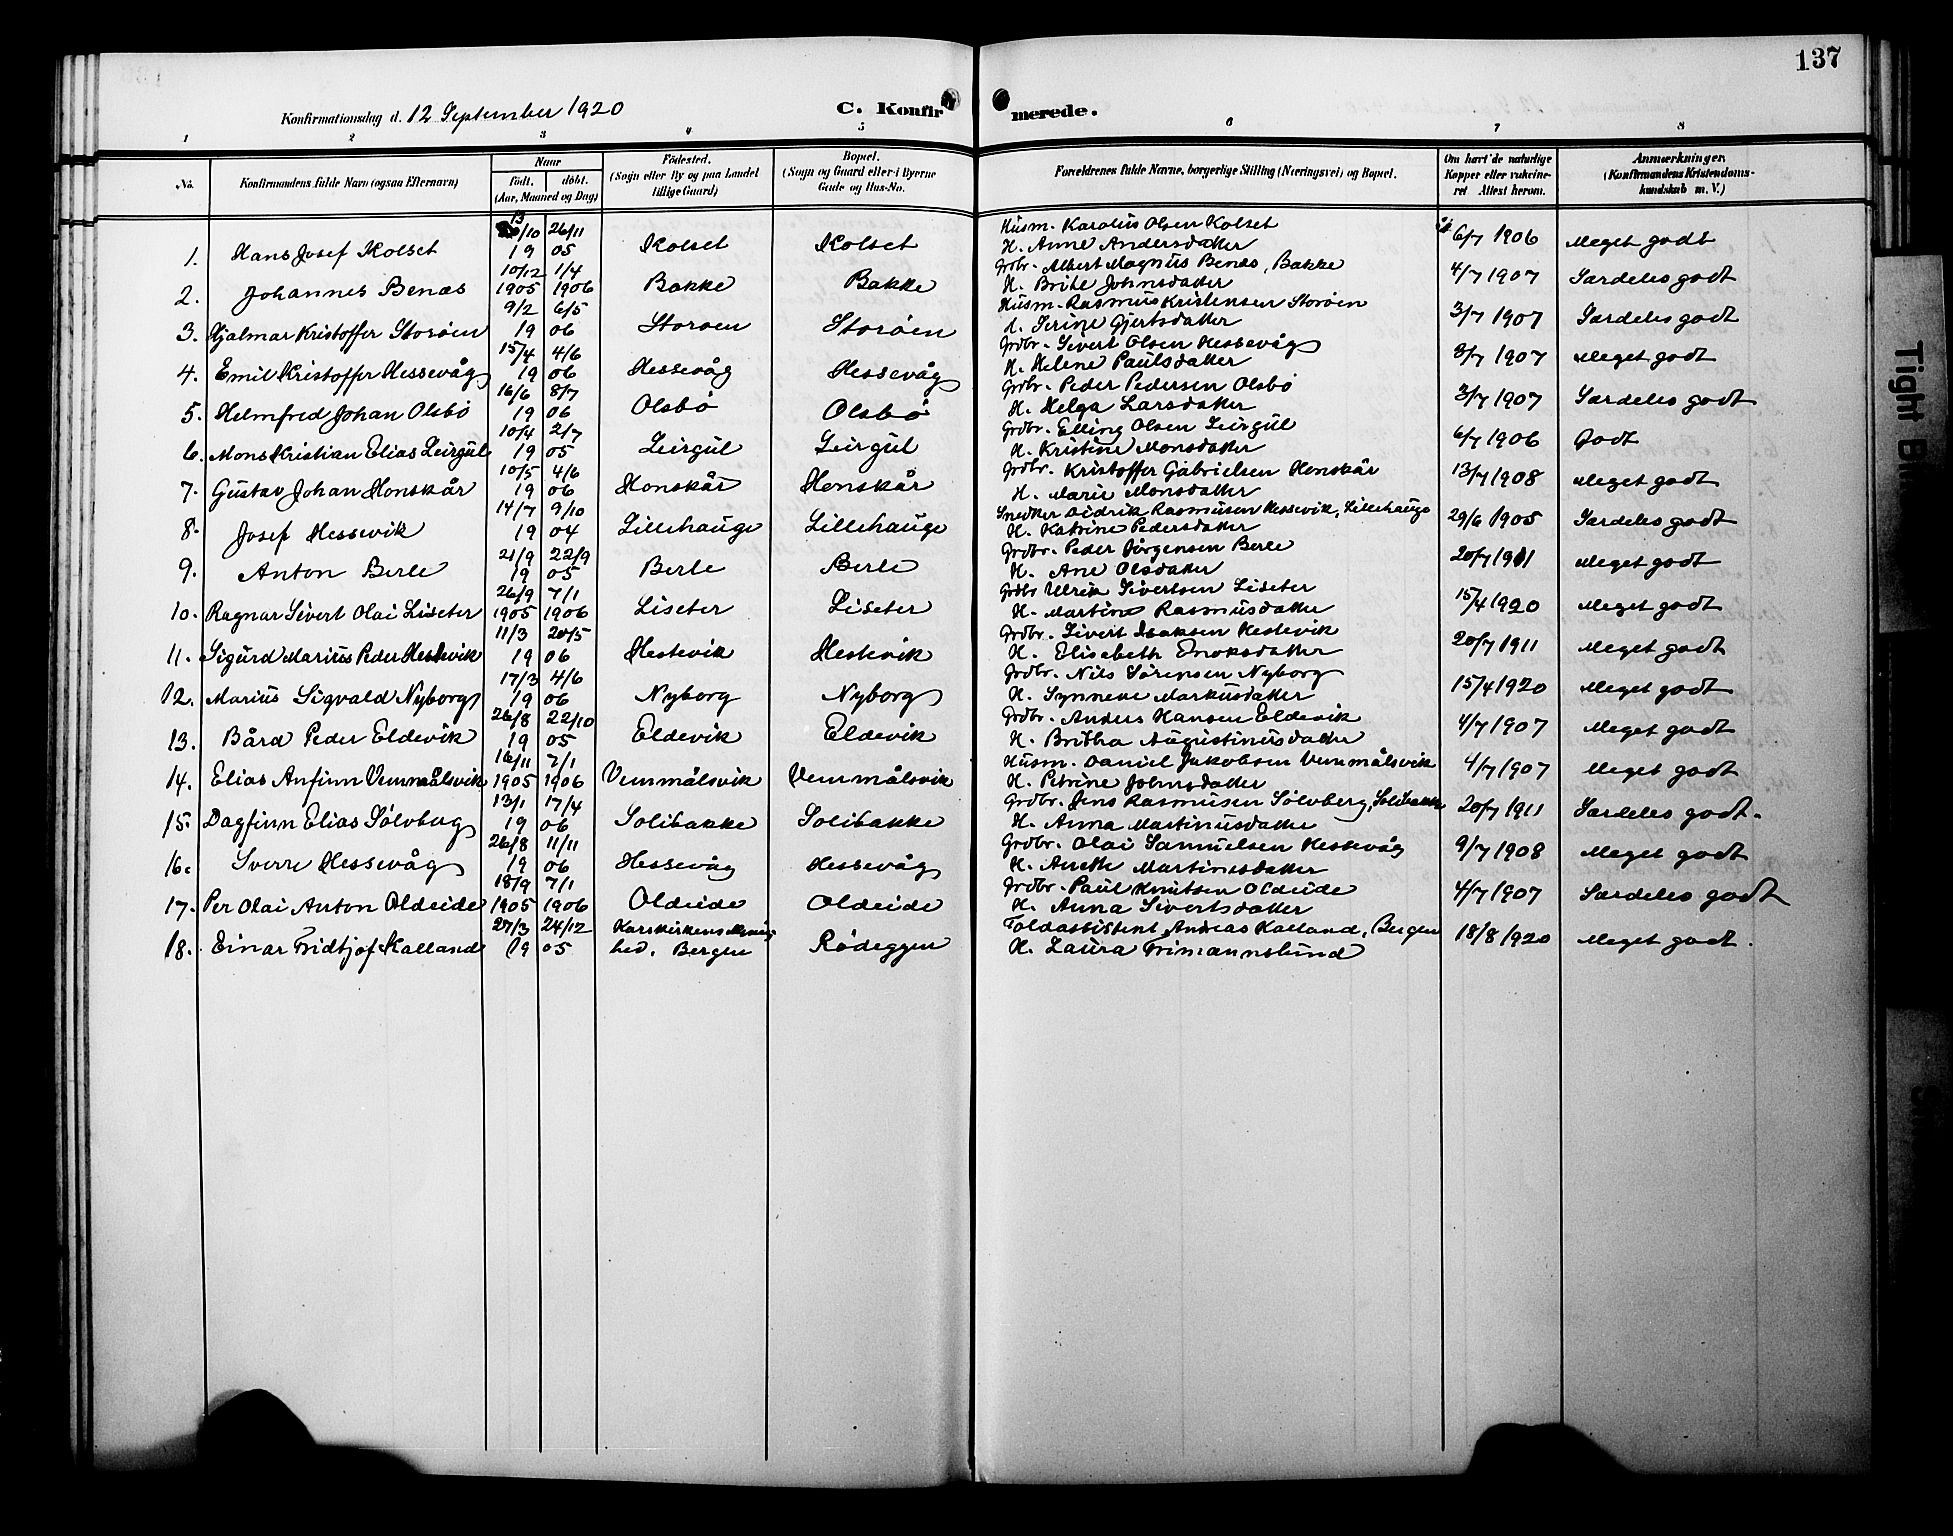 137
Konfirmationsdag d. 12 September 1920
C. Konfirmerede.
1 2 3 4 5 6 7 8
No. Konfirmandens fulde Navn (ogsaa Efternavn) Naar født. døbt. (Aar, Maaned og Dag) Fødested. (Sogn eller By og paa Landet tillige Gaard) Bopæl. (Sogn og Gaard eller i Byerne Gade og Hus-No. Forældrenes fulde Navne, borgerlige Stilling (Næringsvei) og Bopæl. Om havt de naturlige Kopper eller vakcineret Attest herom. Anmærkninger. (Konfirmandens Kristendomskundskab m. V.)
13/10 26/11 Husm. Karolus Olsen Kolset
1. Hans Josef Kolset 19 05 Kolset Kolset H. Anne Andersdatter 6/7 1906 Meget godt
10/12 1/4 Grdbr. Albert Magnus Benæs, Bakke
2. Johannes Benæs 1905 1906 Bakke Bakke H. Brite Johnsdatter 4/7 1907 Særdeles godt
9/2 6/5 Husm. Rasmus Kristensen Storøen
3. Hjalmar Kristoffer Storøen 19 06 Storøen Storøen H. Serine Gjertsdatter 3/7 1907 Særdeles godt
15/4 4/6 Grdbr. Sivert Olsen Hessevåg
4. Emil Kristoffer Hessevåg 19 06 Hessevåg Hessevåg H. Helene Paulsdatter 3/7 1907 Meget godt
16/6 8/7 Grdbr. Peder Pedersen Olsbø
5. Helmfred Johan Olsbø 19 06 Olsbø Olsbø H. Helga Larsdatter 3/7 1907 Særdeles godt
10/4 2/7 Grdbr. Elling Olsen Leirgul
6. Mons Kristian Elias Leirgul 19 05 Leirgul Leirgul H. Kristine Monsdatter 6/7 1906 Godt
10/5 4/6 Grdbr. Kristoffer Gabrielsen Honskår
7. Gustav Johan Honskår 19 06 Honskår Honskår H. Marie Monsdatter 13/7 1908 Meget godt
14/7 9/10 Snedker Didrik Rasmusen Hessevik, Lillehauge
8. Josef Hessevik 19 04 Lillehauge Lillehauge H. Katrine Pedersdatter 29/6 1905 Særdeles godt
21/9 22/9 Grdbr. Peder Jörgensen Berle
9. Anton Berle 19 05 Berle Berle H. Ane Olsdatter 20/7 1911 Meget godt
26/9 7/1 Grdbr Ulrik Sivertsen Liseter
10. Ragnar Sivert Olai Liseter 1905 1906 Liseter Liseter H. Martine Rasmusdatter 15/4 1920 Meget godt
11/3 20/5 Grdbr. Sivert Isaksen Hestevik
11. Sigurd Marius Peder Hestevik 19 06 Hestevik Hestevik H. Elisabeth Enoksdatter 20/7 1911 Meget godt
17/3 4/6 Grdbr. Nils Sørensen Nyborg
12. Marius Sigvald Nyborg 19 06 Nyborg Nyborg H. Synneve Markusdatter 15/4 1920 Meget godt
26/8 22/10 Grdbr. Anders Hansen Eldevik
13. Bård Peder Eldevik 19 05 Eldevik Eldevik H. Britha Augustinusdatter 4/7 1907 Meget godt
16/11 7/1 Husm. Daniel Jakobsen Vemmålsvik
14. Elias Anfinn Vemmålsvik 1905 1906 Vemmålsvik Vemmålsvik H. Petrine Johnsdatter 4/7 1907 Meget godt
13/1 17/4 Grdbr. Jens Rasmusen Sølvberg, Solibakke
15. Dagfinn Elias Sølvberg 19 06 Solibakke Solibakke H. Anna Martinusdatter 20/7 1911 Særdeles godt.
26/8 11/11 Grdbr. Olai Samuelsen Hessevåg
16. Sverre Hessevåg 19 06 Hessevåg Hessevåg H. Anethe Martinusdatter 9/7 1908 Meget godt
18/9 7/1 Grdbr. Paul Knutsen Oldeide
17. Per Olai Anton Oldeide 1905 1906 Oldeide Oldeide H. Anna Sivertsdatter 4/7 1907 Særdeles godt
27/3 24/12 Korskirkens Menig Toldassistent Andreas Kalland, Bergen
18. Einar Fridtjof Kalland 19 05 hed. Bergen Rødeggen H. Laura Frimannslund 18/8 1920 Meget godt.